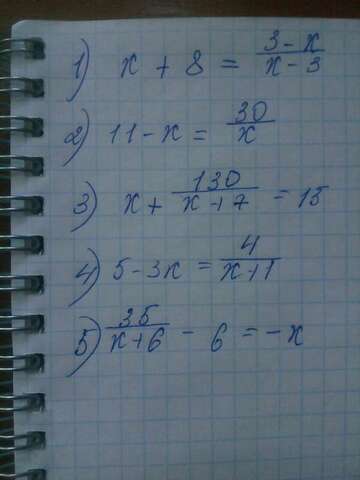 1) x + 8 = (3 - x)/(x - 3)
2) 11 - x = 30/x
3) x + 130/(x + 7) = 15
4) 5 - 3x = 4/(x + 1)
5) 35/(x + 6) - 6 = -x